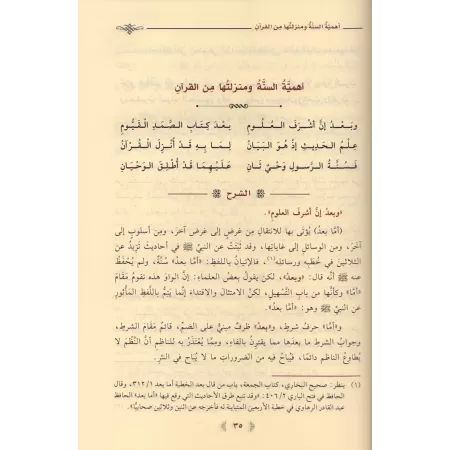 أهميَّةُ السنَّةُ ومنزلتُها مِن القرآنِ
أهميَّةُ السنَّةُ ومنزلتُها مِن القرآنِ
وَبَعْدُ إنَّ أشْرَفَ العُلُومِ بَعْدَ كِتَابِ الصَّمَدِ القَيُّومِ
عِلْمُ الحَدِيثِ إذْ هُوَ البَيَانُ لِمَا بِهِ قَدْ أُنْزِلَ القُرْآنُ
فَسُنَّةُ الرَّسولِ وَحْيٌ ثَانِ عَلَيْهِمَا قَدْ أُطْلِقَ الوَحْيَانِ
ﷺ الشرح ﷺ
«وبعدُ إنَّ أشرفَ العلومِ».
(أمَّا بعدُ) يُؤتَى بها للانتقالِ مِن غرضٍ إلى غرضٍ آخرَ، ومِن أسلوبٍ إلى
آخرَ، ومن الوسائلِ إلى غاياتِها، وقد ثَبَتَ عن النبيِّ ﷺ في أحاديثَ تَزِيدُ عنِ
الثلاثينَ في خُطَبِه ورسائلِه(١)، فالإتيانُ باللفظِ: «أمَّا بعدُ» سُنَّةٌ، ولم يُحْفَظْ
عنه ﷺ أنَّه قال: «وبعدُ»، لكن يقولُ بعضُ العلماءِ: إنَّ الواوَ هذه تقومُ مَقَامَ
«أمَّا» وكأنَّها من بابِ التَّسهيلِ، لكنْ الامتثالُ والاقتداءُ إنَّما يَتِمُّ باللَّفظِ المأثورِ
عن النبيِّ ﷺ وهو: «أمَّا بعدُ».
و(أمَّا) حرفُ شرطٍ، و«بعدُ» ظرفٌ مبنيٌّ على الضمِّ، قائمٌ مَقَامَ الشرطِ،
وجوابُ الشرطِ ما بعدَها مما يقترنُ بالفاءِ، وممَّا يُعْتَذَرُ به للناظمِ أنَّ النَّظْمَ لا
يُطاوعُ الناظمَ دائمًا، فيُباحُ فيه من الضروراتِ ما لا يُباحُ في النثرِ.
(١) ينظر: صحيح البخاري، كتاب الجمعة، باب من قال بعد الخطبة أما بعد ٣١٢/١، وقال
الحافظ في فتح الباري ٤٠٦/٢: «وقد تتبع طرق الأحاديث التي وقع فيها «أما بعد» الحافظ
عبد القادر الرهاوي في خطبة الأربعين المتباينة له فأخرجه عن اثنين وثلاثين صحابيًّا».
٣٥